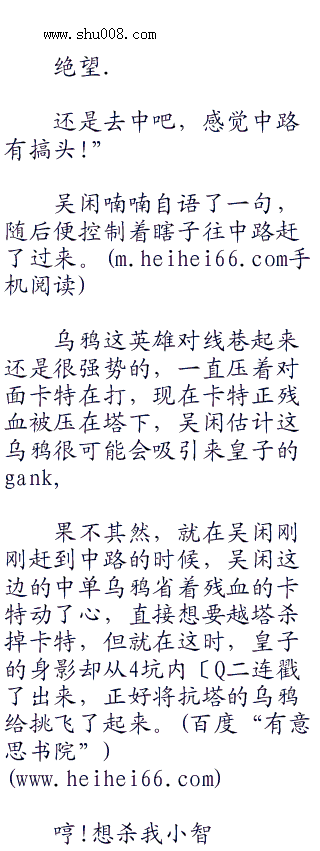 www.shu008.com
绝望.
还是去中吧，感觉中路
有搞头!”
吴闲喃喃自语了一句，
随后便控制着瞎子往中路赶
了过来。(m.heihei66.com手
机阅读)
乌鸦这英雄对线巷起来
还是很强势的，一直压着对
面卡特在打，现在卡特正残
血被压在塔下，吴闲估计这
乌鸦很可能会吸引来皇子的
gank,
果不其然，就在吴闲刚
刚赶到中路的时候，吴闲这
边的中单乌鸦省着残血的卡
特动了心，直接想要越塔杀
掉卡特，但就在这时，皇子
的身影却从4坑内〔Q二连戳
了出来，正好将抗塔的乌鸦
给挑飞了起来。(百度“有意
思书院”)
(www.heihei66.com)
哼!想杀我小智